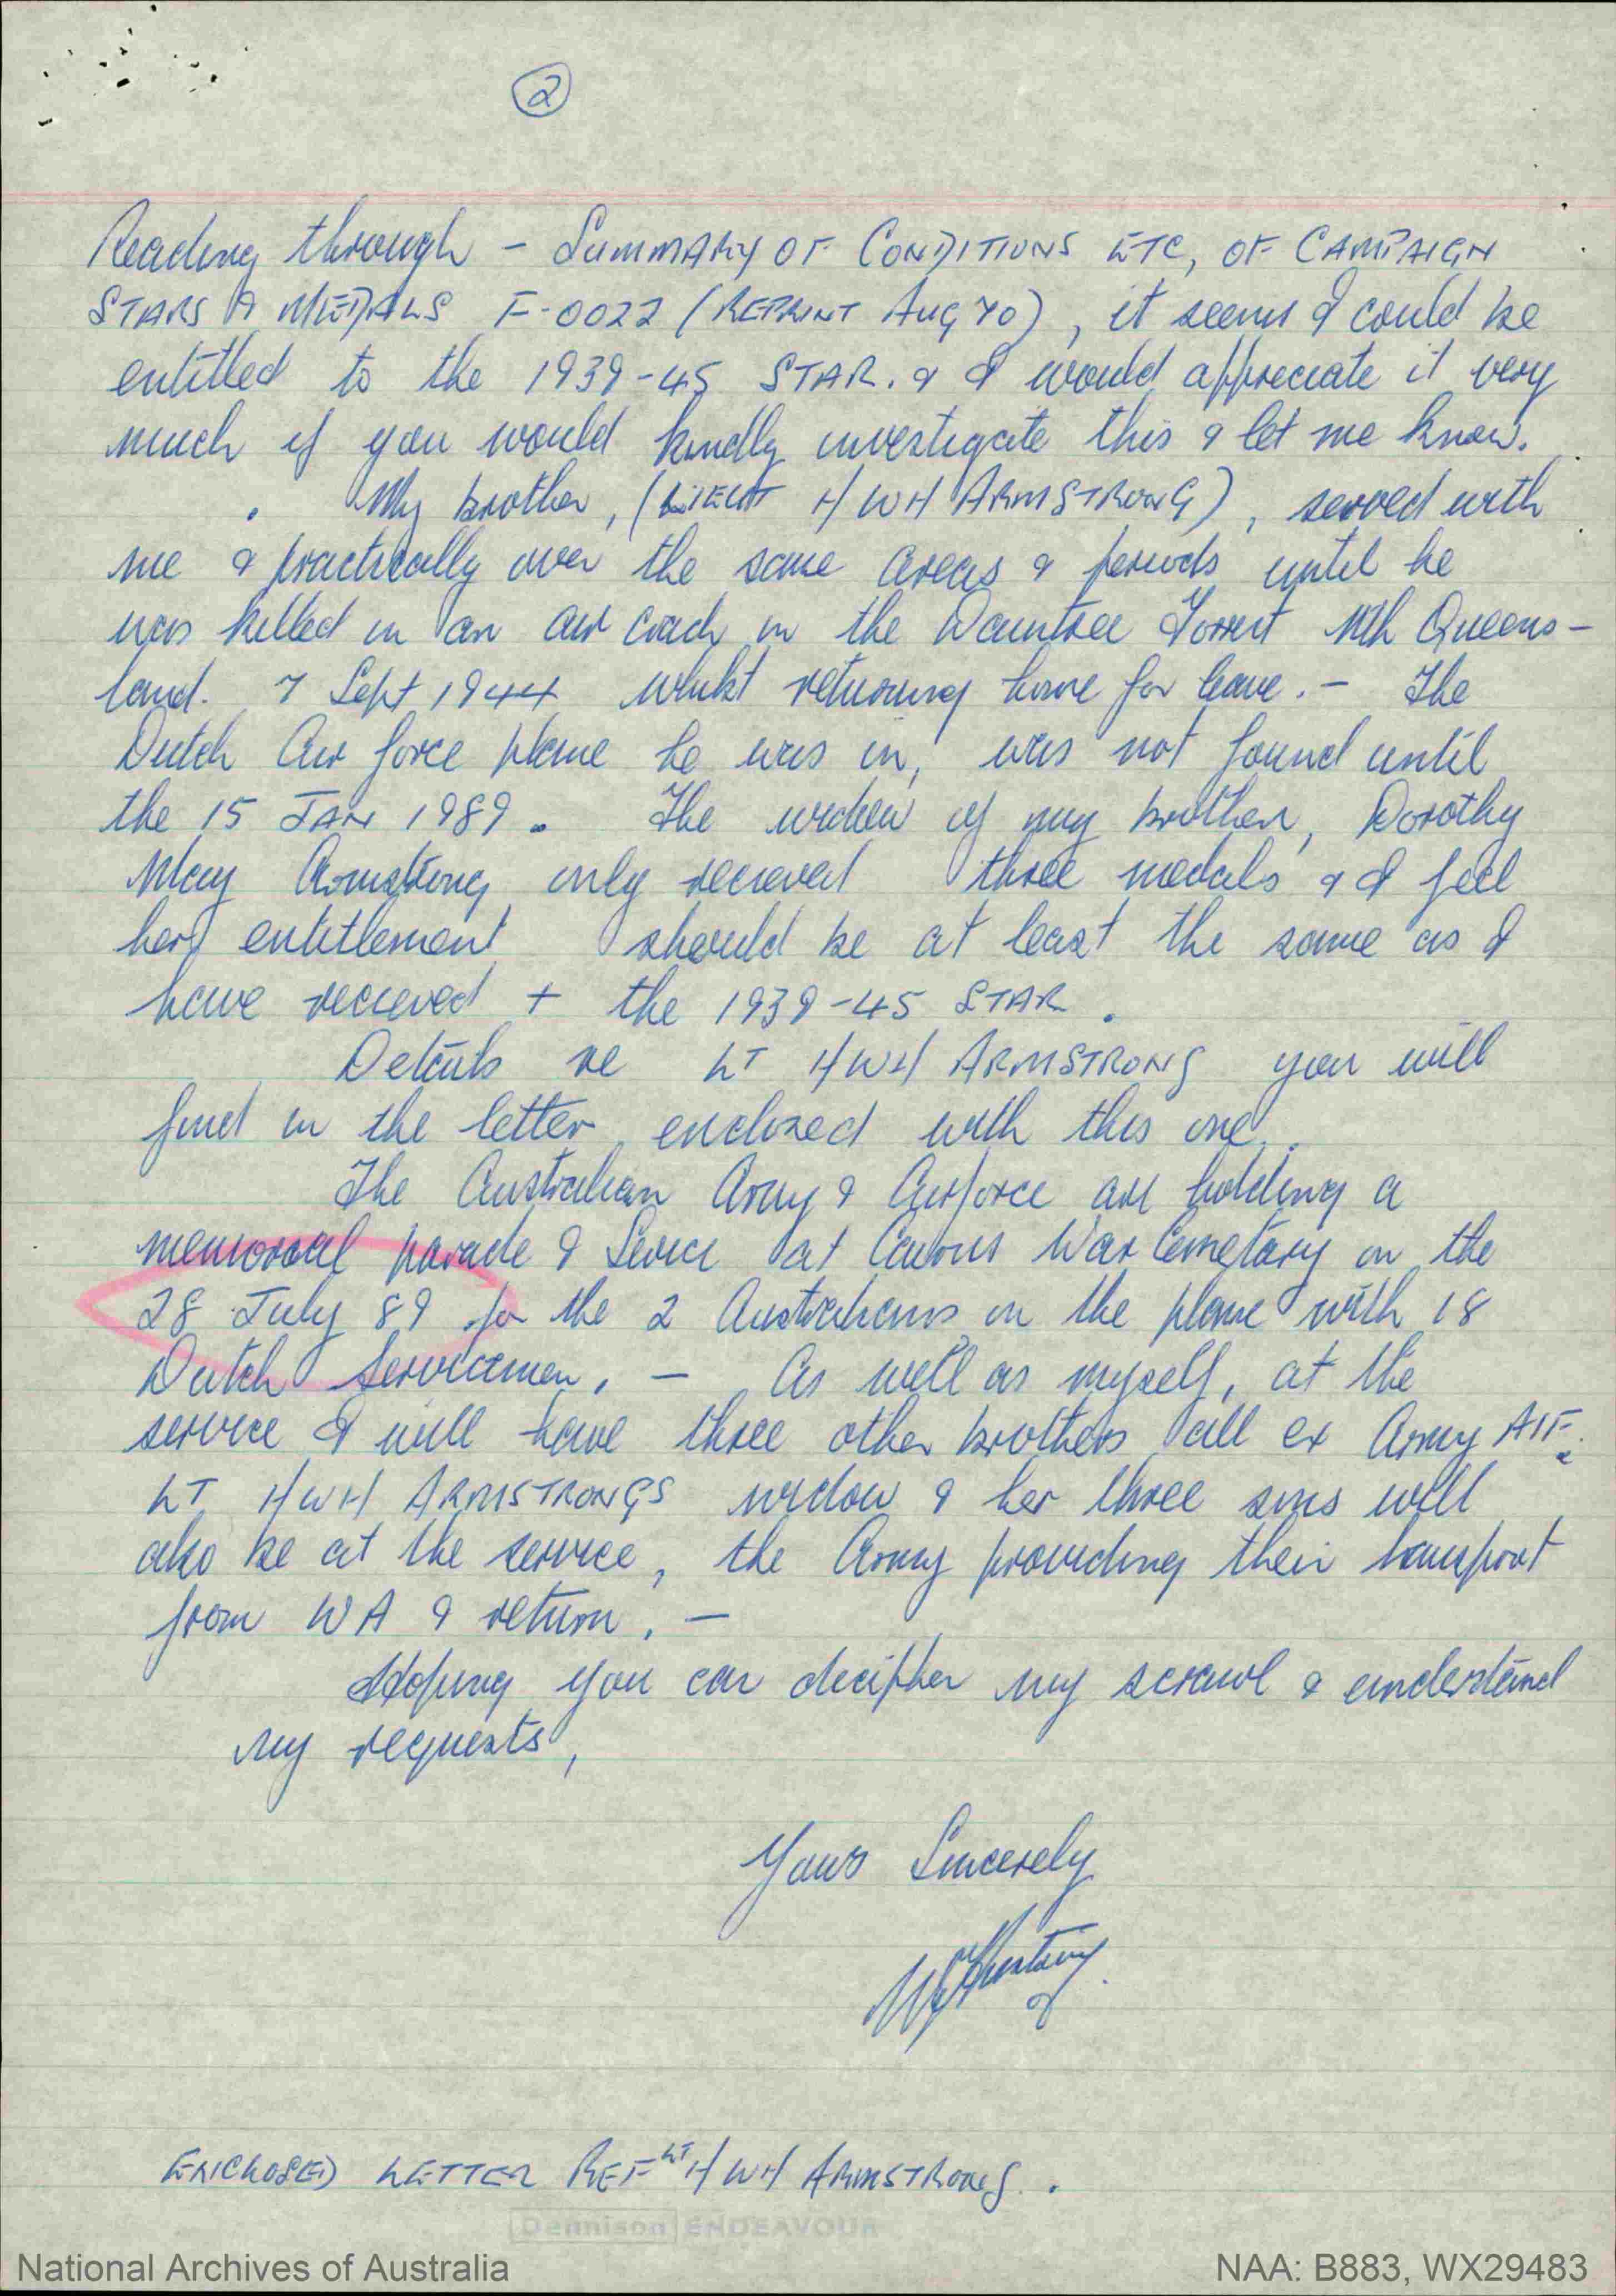 2
Reading through - SUMMARY OF CONDITIONS ETC, OF CAMPAIGN
STARS & MEDALS F-0022 (REPRINT AUG 70), it seems I could be
entitled to the 1939-45 STAR. & I would appreciate it very
much if you would kindly investigate this & let me know.
My brother, (LIEUT H W H ARMSTRONG), served with
me & practically over the same areas & periods until he
was killed in an air crash in the Daintree Forrest Nth Queens-
land. 7 Sept 1944 whilst returning home for leave. - The
Dutch Air force plane he was in, was not found until
the 15 JAN 1989. The widow of my brother, Dorothy
May Armstrong only recieved three medals & I feel
her entitlement should be at least the same as I
have recieved + the 1939-45 STAR.
Details re LT H W H ARMSTRONG you will
find in the letter enclosed with this one.
The Australian Army & Airforce are holding a
memorial parade & Service at Cairns War Cemetary on the
28 July 89 for the 2 Australians in the plane with 18
Dutch Servicemen. - As well as myself, at the
service I will have three other brothers all ex Army AIF.
LT H W H ARMSTRONGS widow & her three sons will
also be at the service, the Army providing their transport
from WA & return. -
Hoping you can decipher my scrawl & understand
my requests,
Yours Sincerely
ENCLOSED LETTER REF LT H W H ARMSTRONG.
Dennison ENDEAVOUR
National Archives of Australia
NAA: B883, WX29483